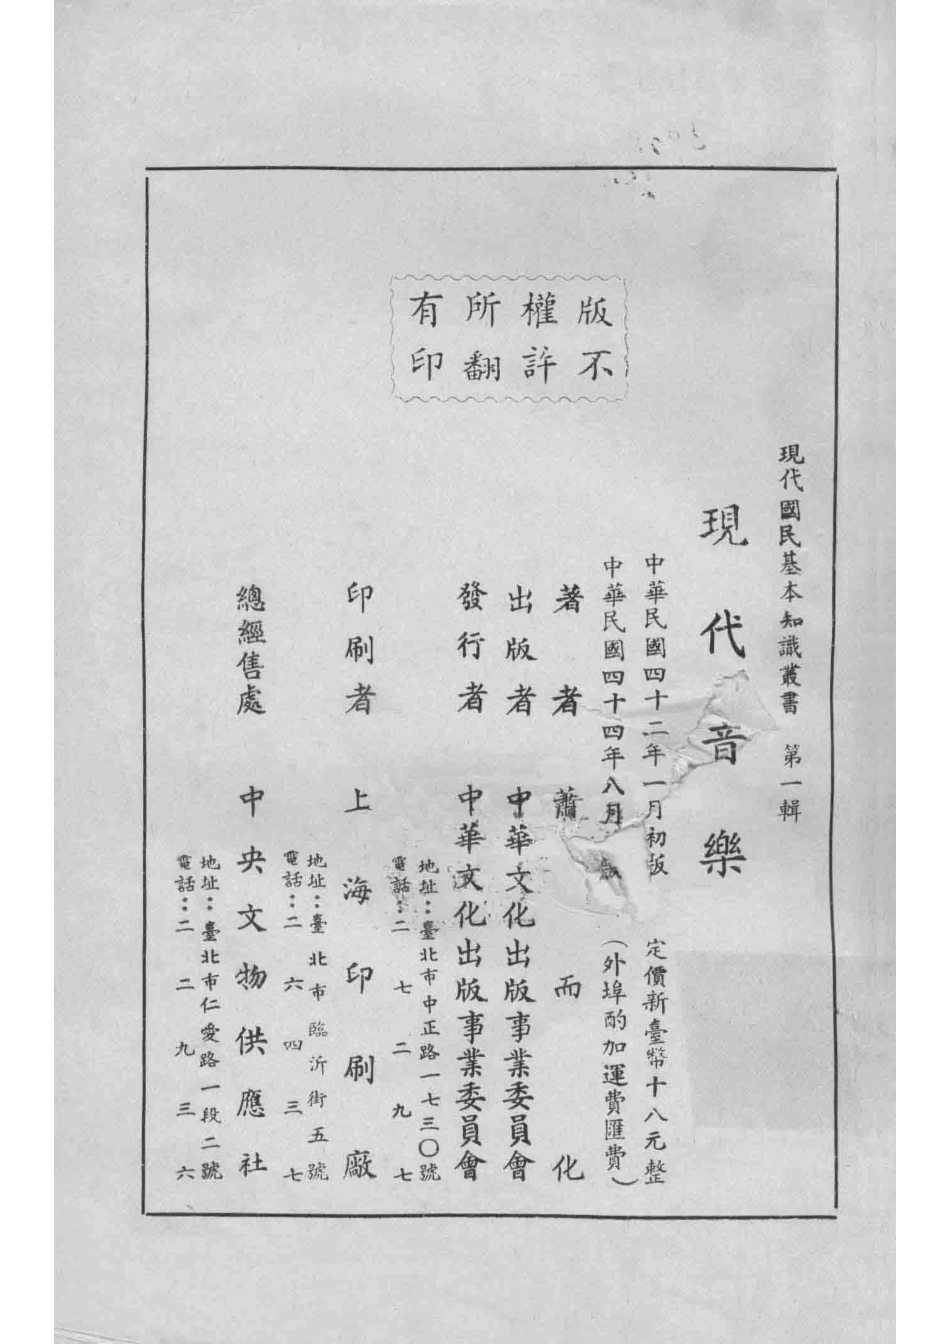 版權所有
不許翻印
現代國民基本知識叢書 第一輯
現代音樂
中華民國四十二年一月初版 定價新臺幣十八元整
中華民國四十四年八月 版 (外埠酌加運費匯費)
著者 蕭而化
出版者 中華文化出版事業委員會
發行者 中華文化出版事業委員會
地址：臺北市中正路一七三〇號
電話：二七二九七
印刷者 上海印刷廠
地址：臺北市臨沂街五號
電話：二六四三七
總經售處 中央文物供應社
地址：臺北市仁愛路一段二號
電話：二二九三六